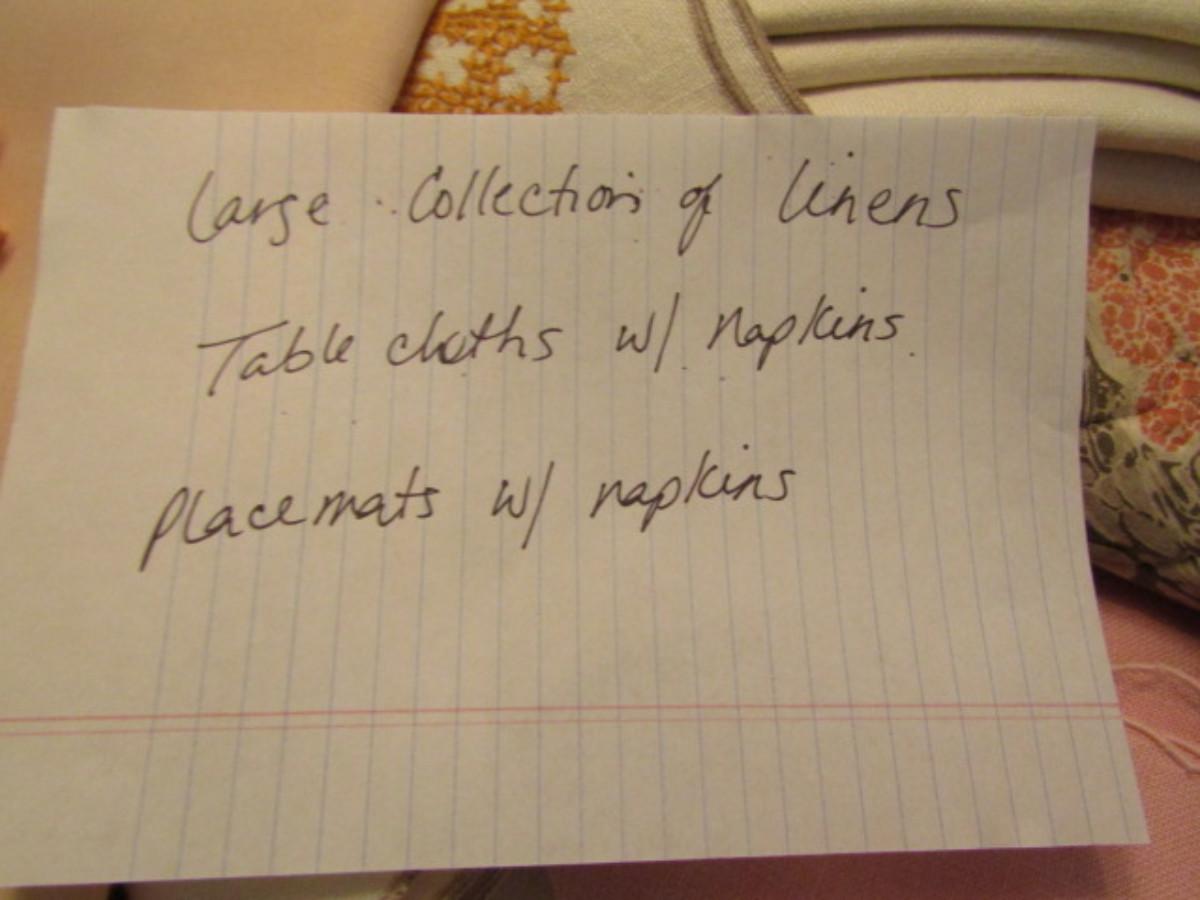 Large Collection of linens
Table cloths w/ napkins
placemats w/ napkins